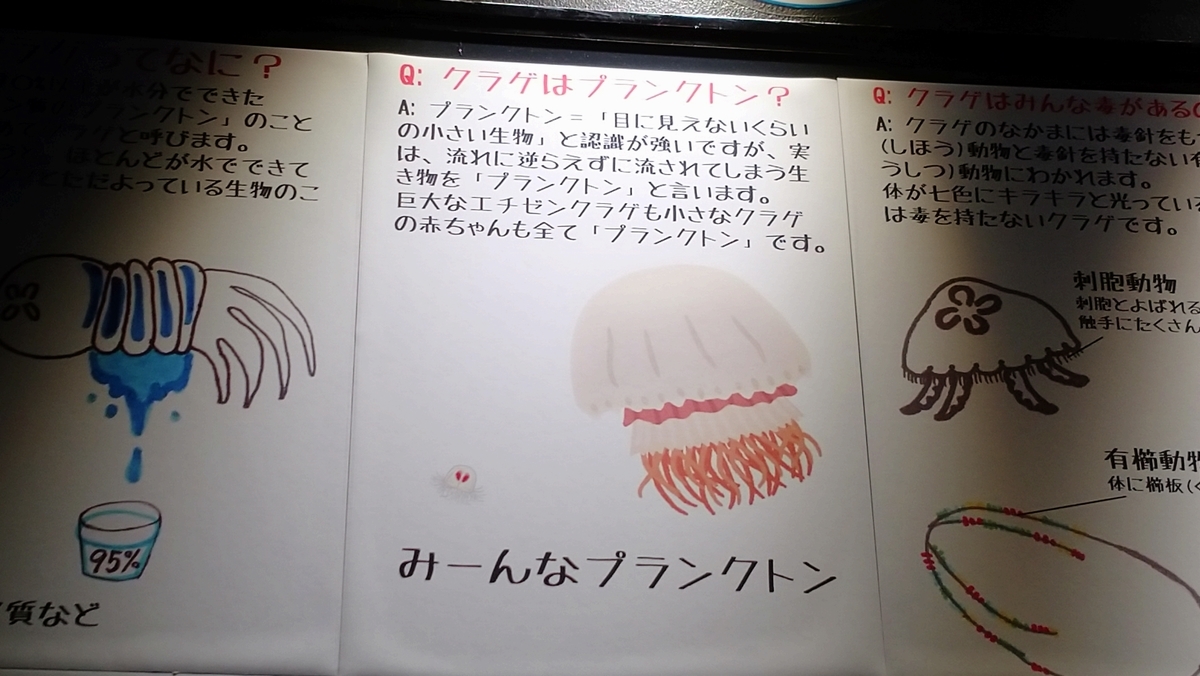 ってなに？
が水分でできた
プランクトン」のこと
ゲと呼びます。
ほとんどが水でできて
ただよっている生物のこ
95%
質など
Q: クラゲはプランクトン？
A: プランクトン＝「目に見えないくらい
の小さい生物」と認識が強いですが、実
は、流れに逆らえずに流されてしまう生
き物を「プランクトン」と言います。
巨大なエチゼンクラゲも小さなクラゲ
の赤ちゃんも全て「プランクトン」です。
みーんなプランクトン
Q: クラゲはみんな毒がある
A: クラゲのなかまには毒針をも
(しほう)動物と毒針を持たない有
うしつ)動物にわかれます。
体が七色にキラキラと光ってい
は毒を持たないクラゲです。
刺胞動物
刺胞とよばれる
触手にたくさん
有櫛動物
体に櫛板(く